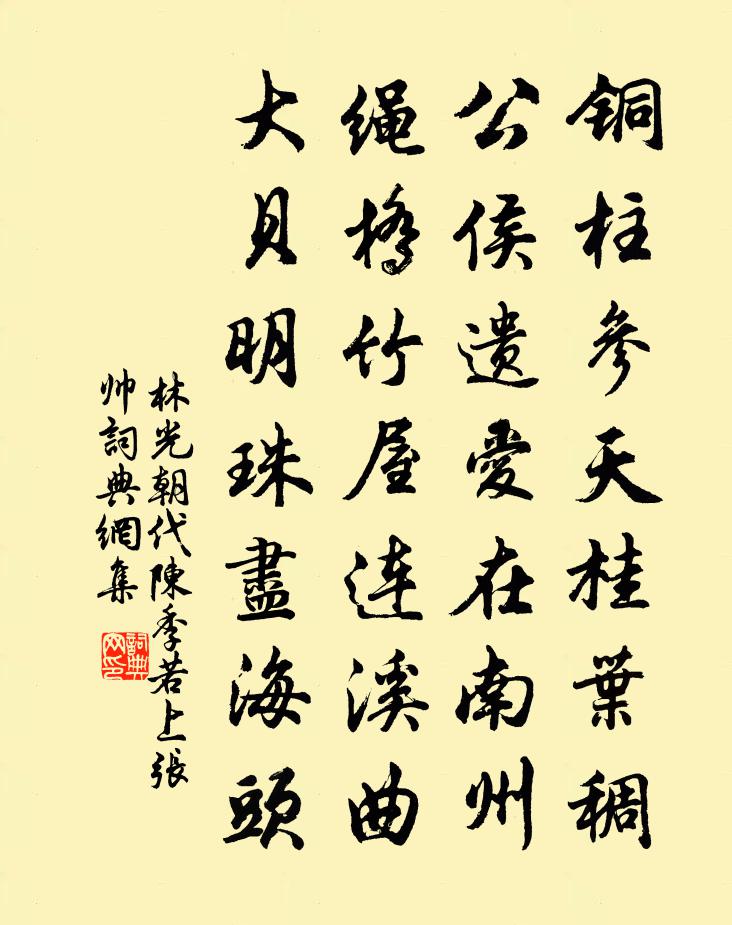 铜柱参天桂葉稠
公侯遗愛在南州
绳橋竹屋连溪曲
大贝明珠盡海頭
林光朝代陳季若上張
帅詞典網集
詞典网印